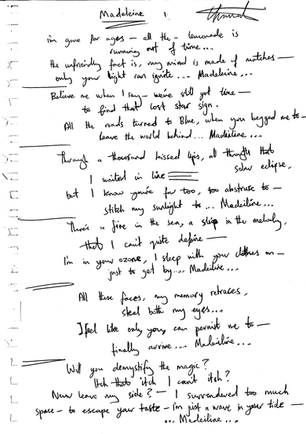 Madeleine
I'm gone for ages – all the – lemonade is
running out of time...
the unfriendly fact is, my mind is made of matches –
only your light can ignite... Madeleine...
Believe me when I say – we've still got time –
to find that lost star sign.
All the roads turned to Blue, when you begged me to –
leave the world behind... Madeleine...
Through a thousand kissed lips, all through that
solar eclipse,
I waited in line
but I know you're far too, too abstruse to –
stitch my sunlight to... Madeleine...
There's a fire in the sea, a slip in the melody,
that I can't quite define –
I'm in your ozone, I sleep with your clothes on –
just to get by... Madeleine...
All these faces, my memory retraces,
steal both my eyes...
I feel like only you, can permit me to –
finally arrive... Madeleine...
Will you demystify the magic?
Itch that itch I can't itch?
Never leave my side? – I surrendered too much
space – to escape your taste – I'm just a wave in your tide –
... Madeleine...